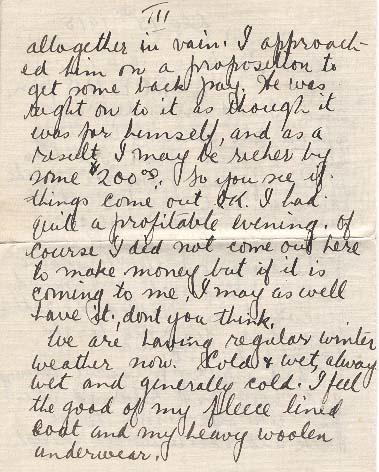 III
altogether in vain. I approach-
ed him on a proposition to
get some back pay. He was
right on to it as though it
was for himself, and as a
result I may be richer by
some $200.00. So you see if
things come out OK. I had
quite a profitable evening. Of
course I did not come out here
to make money but if it is
coming to me, I may as well
have it, dont you think.
We are having regular winter
weather now. Cold & wet, alway
wet and generally cold. I feel
the good of my fleece lined
coat and my heavy woolen
underwear.